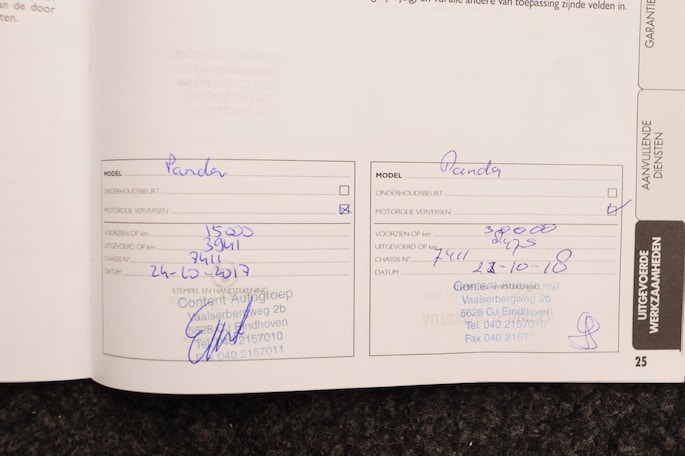 an de door
ten.
en vul alle andere van toepassing zijnde velden in.
GARANTIE
AANVULLENDE
DIENSTEN
UITGEVOERDE
WERKZAAMHEDEN
MODEL Panda
ONDERHOUDSBEURT
MOTOROLIE VERVERSEN
VOORZIEN OP km 15000
UITGEVOERD OP km 3941
CHASSIS N° 7411
DATUM 24-10-2017
STEMPEL EN HANDTEKENING
Content Autogroep
Vaalserbergweg 2b
5628 CJ Eindhoven
Tel. 040 2157010
Fax 040 2157011
MODEL Panda
ONDERHOUDSBEURT
MOTOROLIE VERVERSEN
VOORZIEN OP km 30000
UITGEVOERD OP km
CHASSIS N° 7411
DATUM -10-18
Vaalserbergweg 2b
5628 CJ Eindhoven
Tel. 040 2157010
Fax 040 2157
25